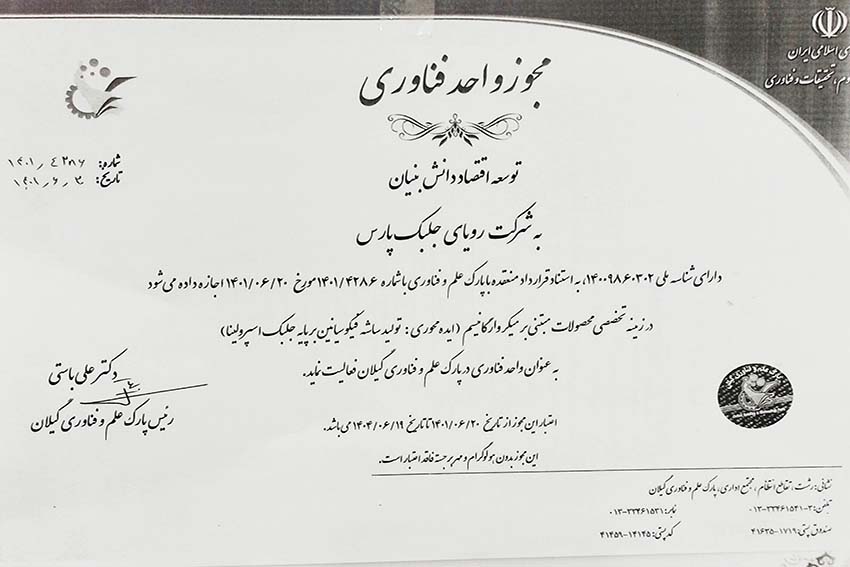 ی اسلامی ایران
وم، تحقیقات و فناوری
مجوز واحد فناوری
شماره: ۱۴۰۱٫۴۲۸۶
تاریخ: ۱۴۰۱٫۶٫۳۰
توسعه اقتصاد دانش بنیان
به شرکت رویای جلبک پارس
دارای شناسه ملی ۱۴۰۰۹۸۶۰۳۰۲، به استناد قرارداد منعقده با پارک علم و فناوری با شماره ۱۴۰۱/۴۲۸۶ مورخ ۱۴۰۱/۰۶/۲۰ اجازه داده می شود
در زمینه تخصصی محصولات مبتنی بر میکروارگانیسم (ایده محوری: تولید ساشه فیکوسیانین بر پایه جلبک اسپرولینا)
به عنوان واحد فناوری در پارک علم و فناوری گیلان فعالیت نماید.
اعتبار این مجوز از تاریخ ۱۴۰۱/۰۶/۲۰ تا تاریخ ۱۴۰۴/۰۶/۱۹ می باشد.
این مجوز بدون هولوگرام و مهر برجسته فاقد اعتبار است.
دکتر علی باستی
رئیس پارک علم و فناوری گیلان
نشانی: رشت، تقاطع انتظام، مجتمع اداری، پارک علم و فناوری گیلان
تلفن: ۳-۰۱۳-۳۳۴۶۱۵۲۱ نمابر: ۰۱۳-۳۳۴۶۱۵۳۱
صندوق پستی: ۴۱۶۳۵-۱۷۱۹ کدپستی: ۴۱۴۵۹-۱۴۱۴۵